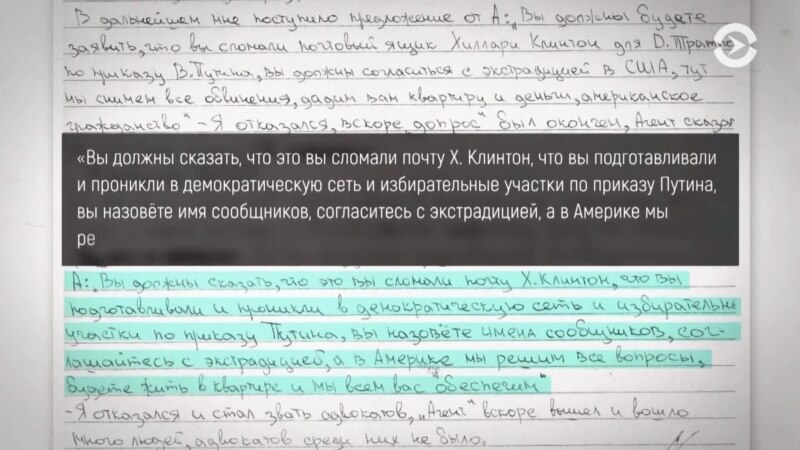 В дальнейшем мне поступило предложение от А: „Вы должны будете
заявить, что вы сломали почтовый ящик Хиллари Клинтон для D. Трампа
по приказу В. Путина, вы должны согласиться с экстрадицией в США, тут
мы снимем все обвинения, дадим вам квартиру и деньги, американское
гражданство" - Я отказался, вскоре „допрос" был окончен, Агент сказал
«Вы должны сказать, что это вы сломали почту Х. Клинтон, что вы подготавливали
и проникли в демократическую сеть и избирательные участки по приказу Путина,
вы назовёте имя сообщников, согласитесь с экстрадицией, а в Америке мы
ре
А: „Вы должны сказать, что это вы сломали почту Х. Клинтон, что вы
подготавливали и проникли в демократическую сеть и избирательн
участки по приказу Путина, вы назовёте имена сообщников, сог-
лашайтесь с экстрадицией, а в Америке мы решим все вопросы,
будете жить в квартире и мы всем вас обеспечим"
- Я отказался и стал звать адвокатов, „Агент" вскоре вышел и вошло
много людей, адвокатов среди них не было.